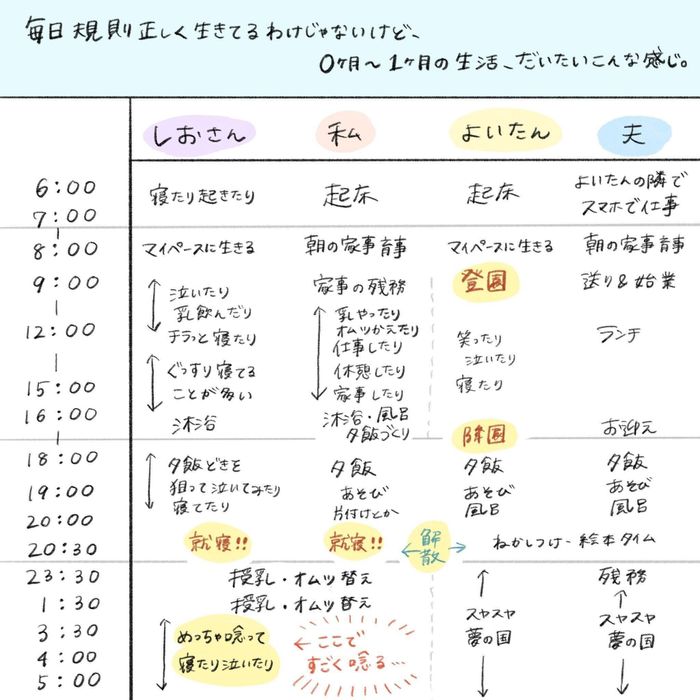 毎日規則正しく生きてるわけじゃないけど、
0ヶ月〜1ヶ月の生活、だいたいこんな感じ。
しおさん 私 よいたん 夫
6:00 寝たり起きたり 起床 起床 よいたんの隣で
7:00 スマホで仕事
8:00 マイペースに生きる 朝の家事育事 マイペースに生きる 朝の家事育事
9:00 泣いたり 家事の残務 登園 送り&始業
乳飲んだり 乳やったり
オムツかえたり
12:00 チラっと寝たり 仕事したり 笑ったり ランチ
ぐっすり寝てる 休憩したり 泣いたり
15:00 ことが多い 家事したり 寝たり
16:00 沐浴 沐浴・風呂 降園 お迎え
夕飯づくり
18:00 夕飯どきを 夕飯 夕飯 夕飯
19:00 狙って泣いてみたり あそび あそび あそび
20:00 寝てたり 片付けとか 風呂 風呂
20:30 就寝!! 就寝!! 解散 ねかしつけ-絵本タイム
23:30 授乳・オムツ替え 残務
1:30 授乳・オムツ替え スヤスヤ スヤスヤ
3:30 めっちゃ唸って ここで 夢の国 夢の国
4:00 寝たり泣いたり すごく唸る…
5:00